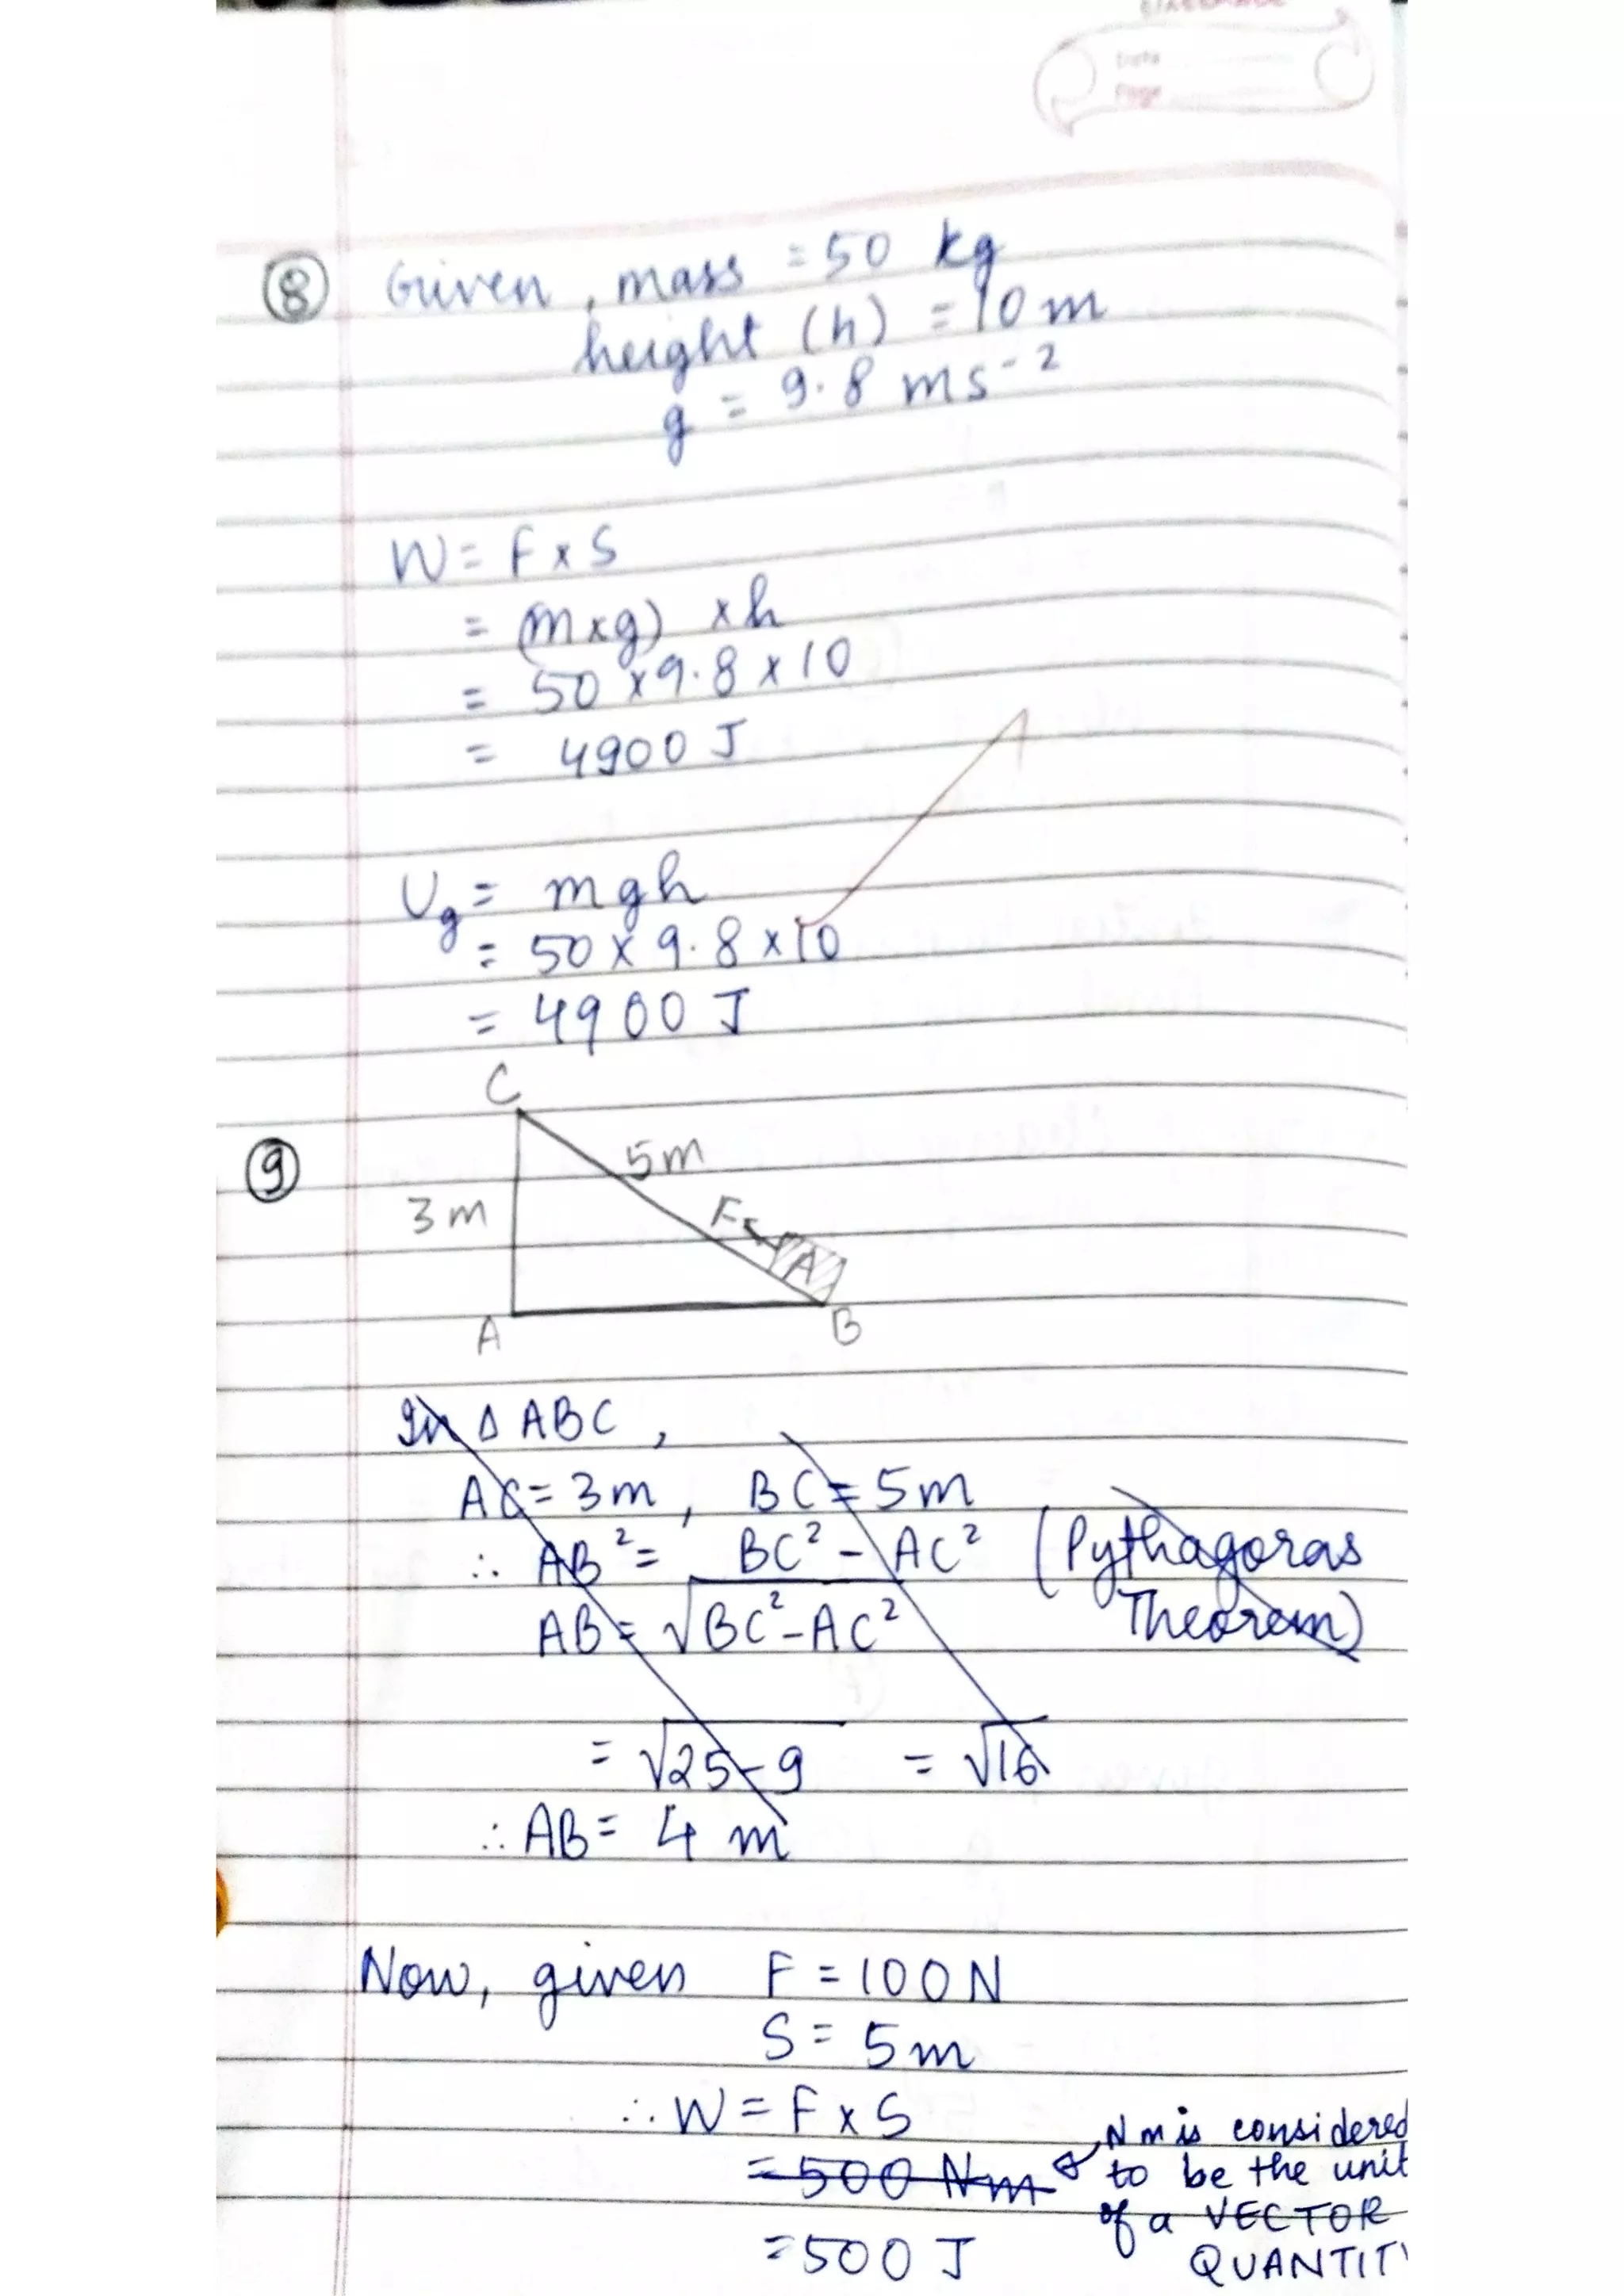 Date
Page
⑧ Given, mass = 50 kg
height (h) = 10 m
g = 9.8 ms⁻²
W = F x S
= (m x g) x h
= 50 x 9.8 x 10
= 4900 J
Ug = mgh
= 50 x 9.8 x 10
= 4900 J
⑨
C
5m
3m
F
A
A
B
In Δ ABC,
AC = 3m, BC = 5m
∴ AB² = BC² - AC² (Pythagoras
Theorem)
AB = √BC² - AC²
= √25-9 = √16
∴ AB = 4 m
Now, given F = 100N
S = 5m
∴ W = F x S
= 500 Nm
Nm is considered
to be the unit
of a VECTOR
QUANTIT
= 500 J